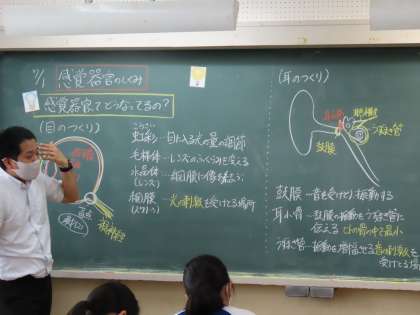 11/1 感覚器官のしくみ
感覚器官ってどうなってるの?
(目のつくり)
こうさい
虹彩－目に入る光の量の調節
毛様体－レンズのふくらみを変える
水晶体－網膜に像を結ぶ
(レンズ)
網膜－光の刺激を受けとる場所
(スクリーン)
(耳のつくり)
耳小骨
うずまき管
鼓膜
鼓膜－音を受けとり振動する
耳小骨－鼓膜の振動をうずまき管に
伝える ヒトの骨の中で最小
うずまき管－振動を
音の刺激を
受けとる場